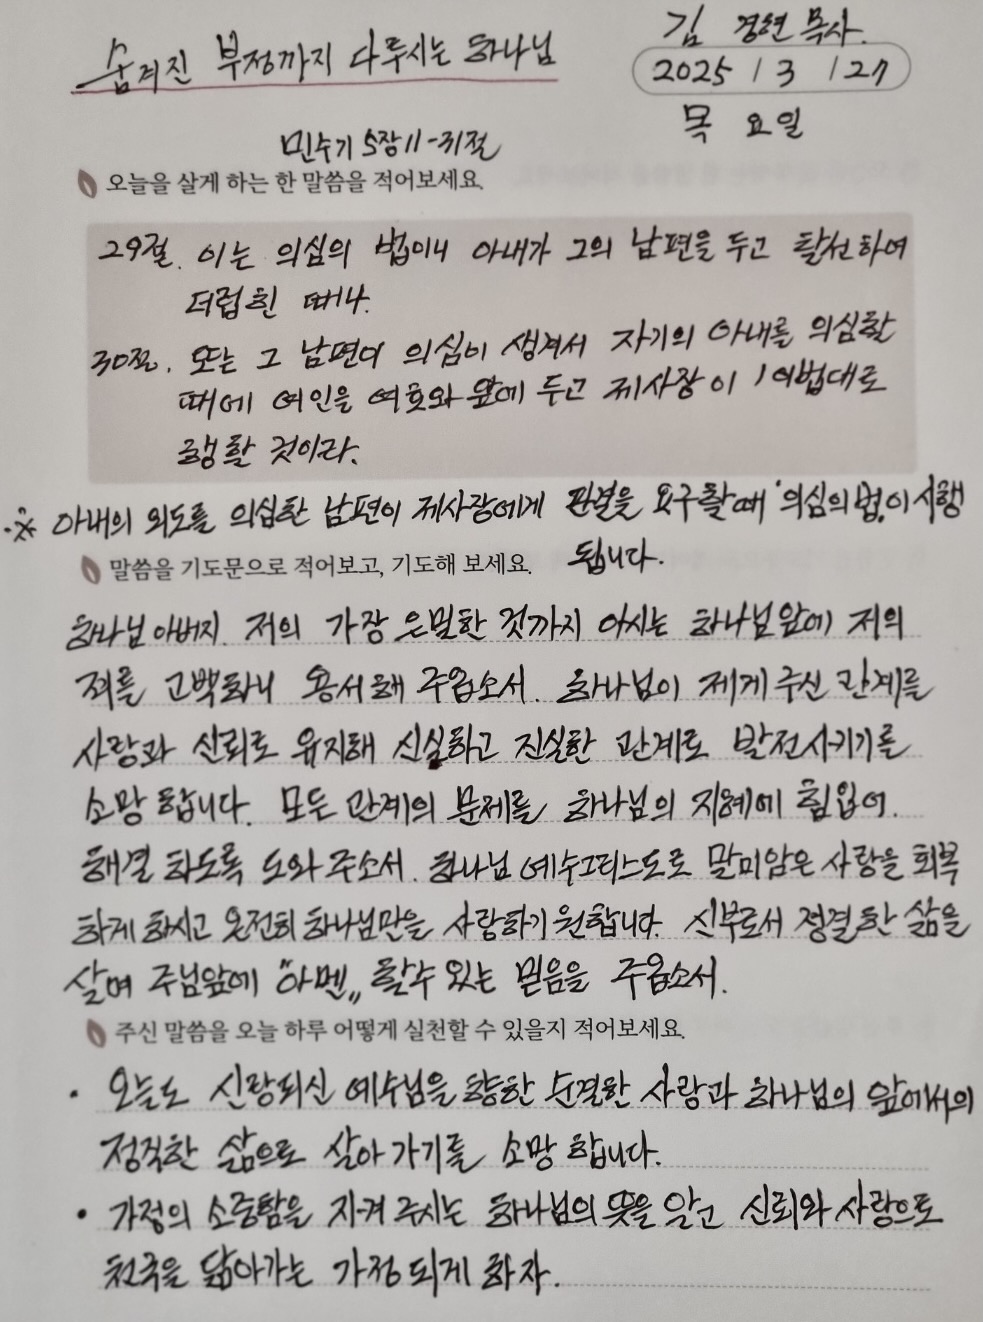 숨겨진 부정까지 다루시는 하나님
김 경현 목사.
2025 / 3 / 27
목 요일
민수기 5장 11-31절
오늘을 살게 하는 한 말씀을 적어보세요.
29절. 이는 의심의 법이니 아내가 그의 남편을 두고 탈선하여
더럽힌 때나.
30절. 또는 그 남편이 의심이 생겨서 자기의 아내를 의심할
때에 여인을 여호와 앞에 두고 제사장이 이법대로
행할 것이라.
※ 아내의 외도를 의심한 남편이 제사장에게 판결을 요구할때 '의심의 법'이 시행
됩니다.
말씀을 기도문으로 적어보고, 기도해 보세요.
하나님 아버지. 저의 가장 은밀한 것까지 아시는 하나님앞에 저의
죄를 고백하니 용서해 주옵소서. 하나님이 제게 주신 관계를
사랑과 신뢰로 유지해 신실하고 진실한 관계로 발전시키기를
소망 합니다. 모든 관계의 문제를 하나님의 지혜에 힘입어.
해결 하도록 도와 주소서. 하나님 예수그리스도로 말미암은 사랑을 회복
하게 하시고 온전히 하나님만을 사랑하기 원합니다. 신부로서 정결한 삶을
살며 주님앞에 "아멘" 할수 있는 믿음을 주옵소서.
주신 말씀을 오늘 하루 어떻게 실천할 수 있을지 적어보세요.
• 오늘도 신랑되신 예수님을 향한 순결한 사랑과 하나님의 앞에써의
정직한 삶으로 살아 가기를 소망 합니다.
• 가정의 소중함을 지켜 주시는 하나님의 뜻을 알고 신뢰와 사랑으로
천국을 닮아가는 가정 되게 하자.